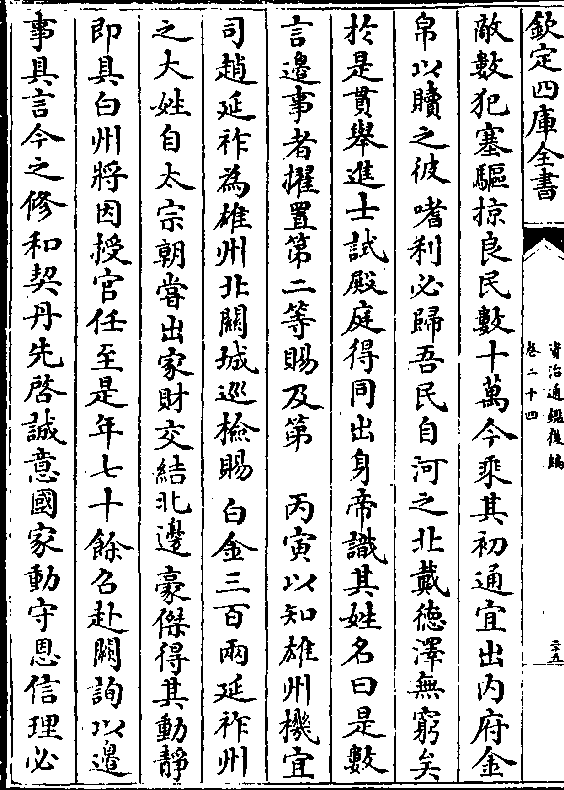 欽定四庫全書
資治通鑑後編
卷二十四
二十五
敵數犯塞驅掠良民數十萬今乘其初通宜出内府金
帛以贖之彼嗜利必歸吾民自河之北戴德澤無窮矣
於是貫舉進士試殿庭得同出身帝識其姓名曰是數
言邊事者擢置第二等賜及第　丙寅以知雄州機宜
司趙延祚為雄州北關城巡檢賜白金三百兩延祚州
之大姓自太宗朝嘗出家財交結北邊豪傑得其動靜
即具白州將因授官任至是年七十餘召赴闕詢以邊
事具言今之修和契丹先啓誠意國家動守恩信理必